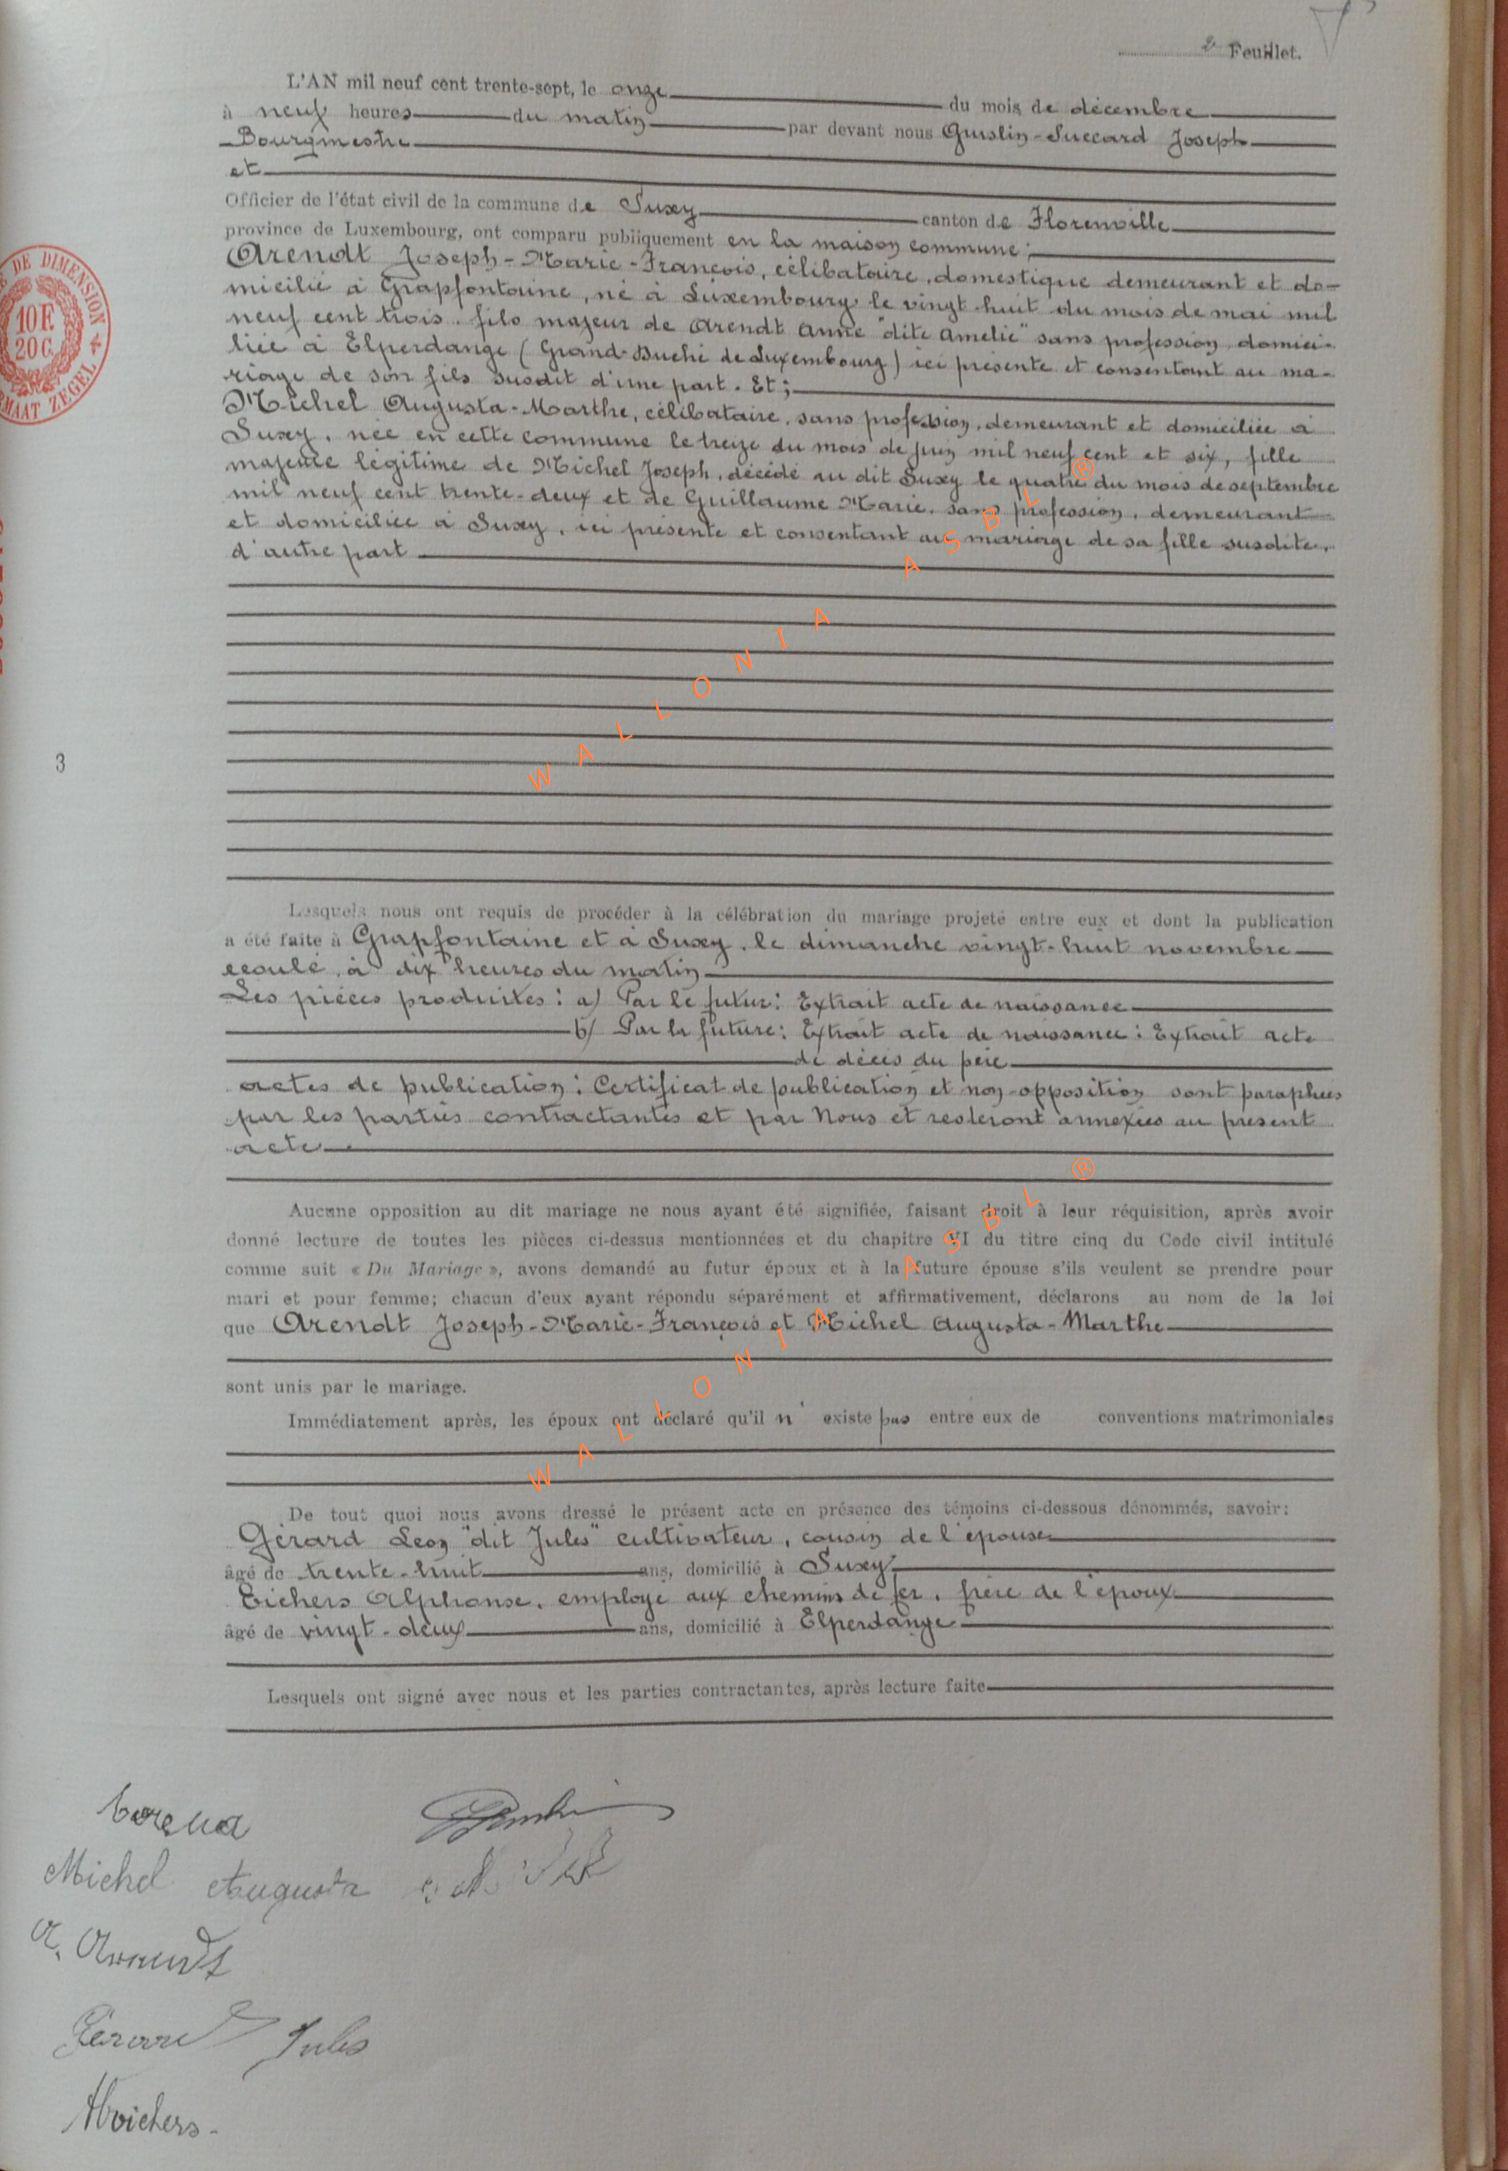 2e Feuillet.
L'AN mil neuf cent trente-sept, le onze du mois de décembre
à neuf heures du matin par devant nous Guislin-Succard Joseph
Bourgmestre
et
Officier de l'état civil de la commune de Suxy canton de Florenville
province de Luxembourg, ont comparu publiquement en la maison commune;
Arendt Joseph-Marie-François, célibataire, domestique demeurant et do-
micilié à Grapfontaine, né à Luxembourg le vingt-huit du mois de mai mil
neuf cent trois, fils majeur de Arendt Anne "dite Amélie" sans profession domici-
liée à Elperdange (Grand-Duché de Luxembourg) ici présente et consentant au ma-
riage de son fils susdit d'une part. Et;
Michel Augusta-Marthe, célibataire, sans profession, demeurant et domiciliée à
Suxy, née en cette commune le treize du mois de juin mil neuf cent et six, fille
majeure légitime de Michel Joseph, décédé au dit Suxy le quatre du mois de septembre
mil neuf cent trente-deux et de Guillaume Marie, sans profession, demeurant
et domiciliée à Suxy, ici présente et consentant au mariage de sa fille susdite,
d'autre part
3
Lesquels nous ont requis de procéder à la célébration du mariage projeté entre eux et dont la publication
a été faite à Grapfontaine et à Suxy, le dimanche vingt-huit novembre
écoulé, à dix heures du matin
Les pièces produites: a) Par le futur: Extrait acte de naissance
b) Par la future: Extrait acte de naissance; Extrait acte
de décès du père
actes de publication; Certificat de publication et non-opposition sont paraphées
par les parties contractantes et par Nous et resteront annexées au présent
acte
Aucune opposition au dit mariage ne nous ayant été signifiée, faisant droit à leur réquisition, après avoir
donné lecture de toutes les pièces ci-dessus mentionnées et du chapitre VI du titre cinq du Code civil intitulé
comme suit « Du Mariage », avons demandé au futur époux et à la future épouse s'ils veulent se prendre pour
mari et pour femme; chacun d'eux ayant répondu séparément et affirmativement, déclarons au nom de la loi
que Arendt Joseph-Marie-François et Michel Augusta-Marthe
sont unis par le mariage.
Immédiatement après, les époux ont déclaré qu'il n' existe pas entre eux de conventions matrimoniales
De tout quoi nous avons dressé le présent acte en présence des témoins ci-dessous dénommés, savoir:
Gérard Léon "dit Jules" cultivateur, cousin de l'épouse
âgé de trente-huit ans, domicilié à Suxy
Eichers Alphonse, employé aux chemins de fer, frère de l'époux
âgé de vingt-deux ans, domicilié à Elperdange
Lesquels ont signé avec nous et les parties contractantes, après lecture faite
Michel Augusta
A. Arendt
Gerard Jules
DE DIMENSION
10 F.
20 C.
ZEGEL
WALLONIA ASBL ®
WALLONIA ASBL ®